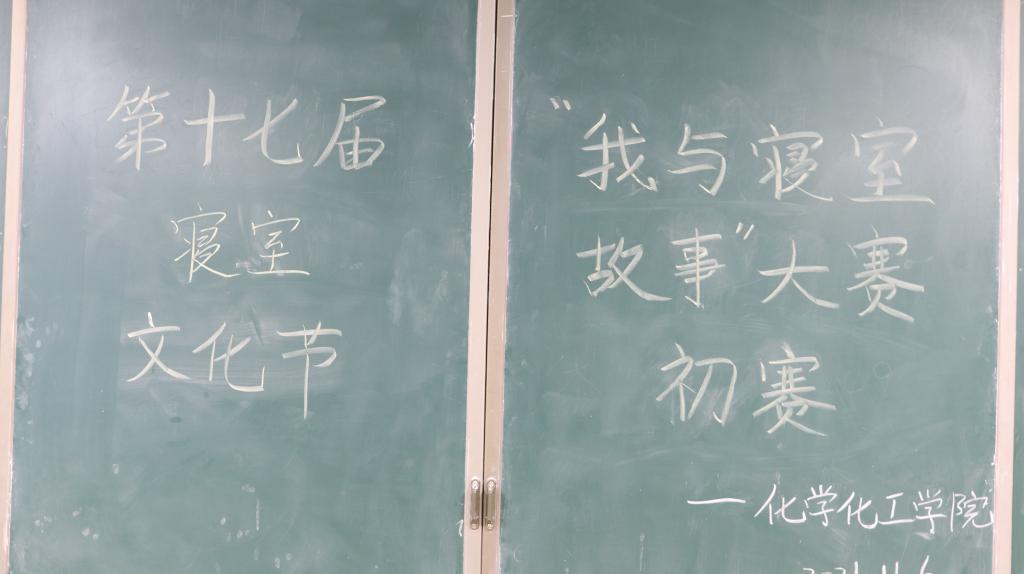 第十七届
寝室
文化节
"我与寝室
故事"大赛
初赛
—化学化工学院